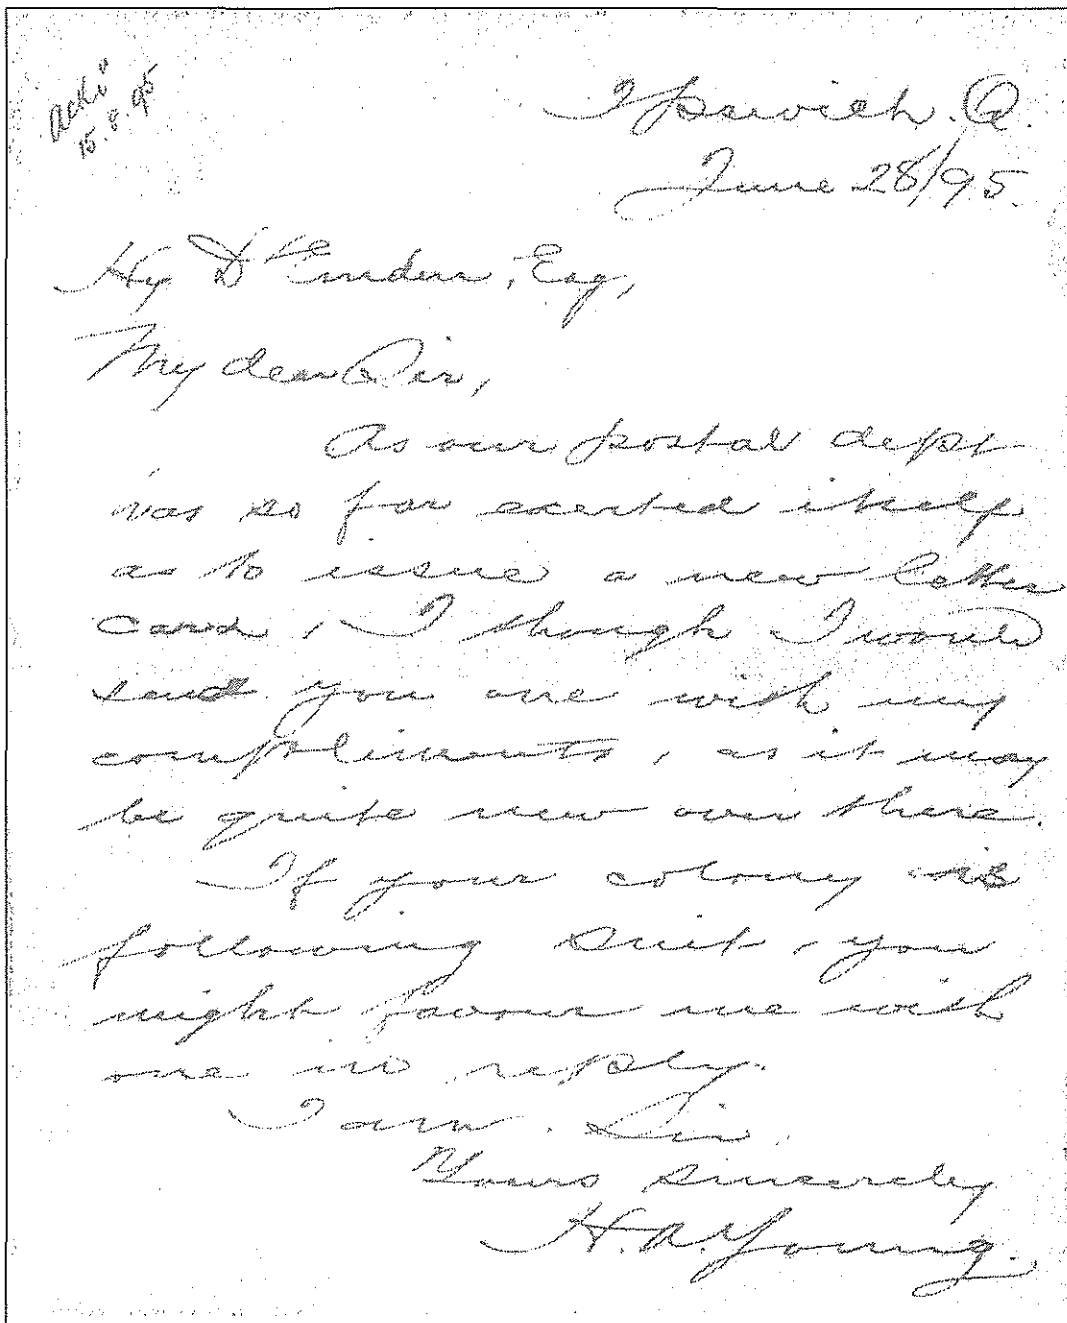 Ackd
15.8.95
Ipswich. Q.
June 28/95.
Hy D'Enden, Esq,
My dear Sir,
As our postal dept
has so far exerted itself
as to issue a new letter
card, I though I would
send you one with my
compliments, as it may
be quite new over there.
If your colony is
following suit, you
might favour me with
one in reply.
I am. Sir.
Yours sincerely
H. A. Young.